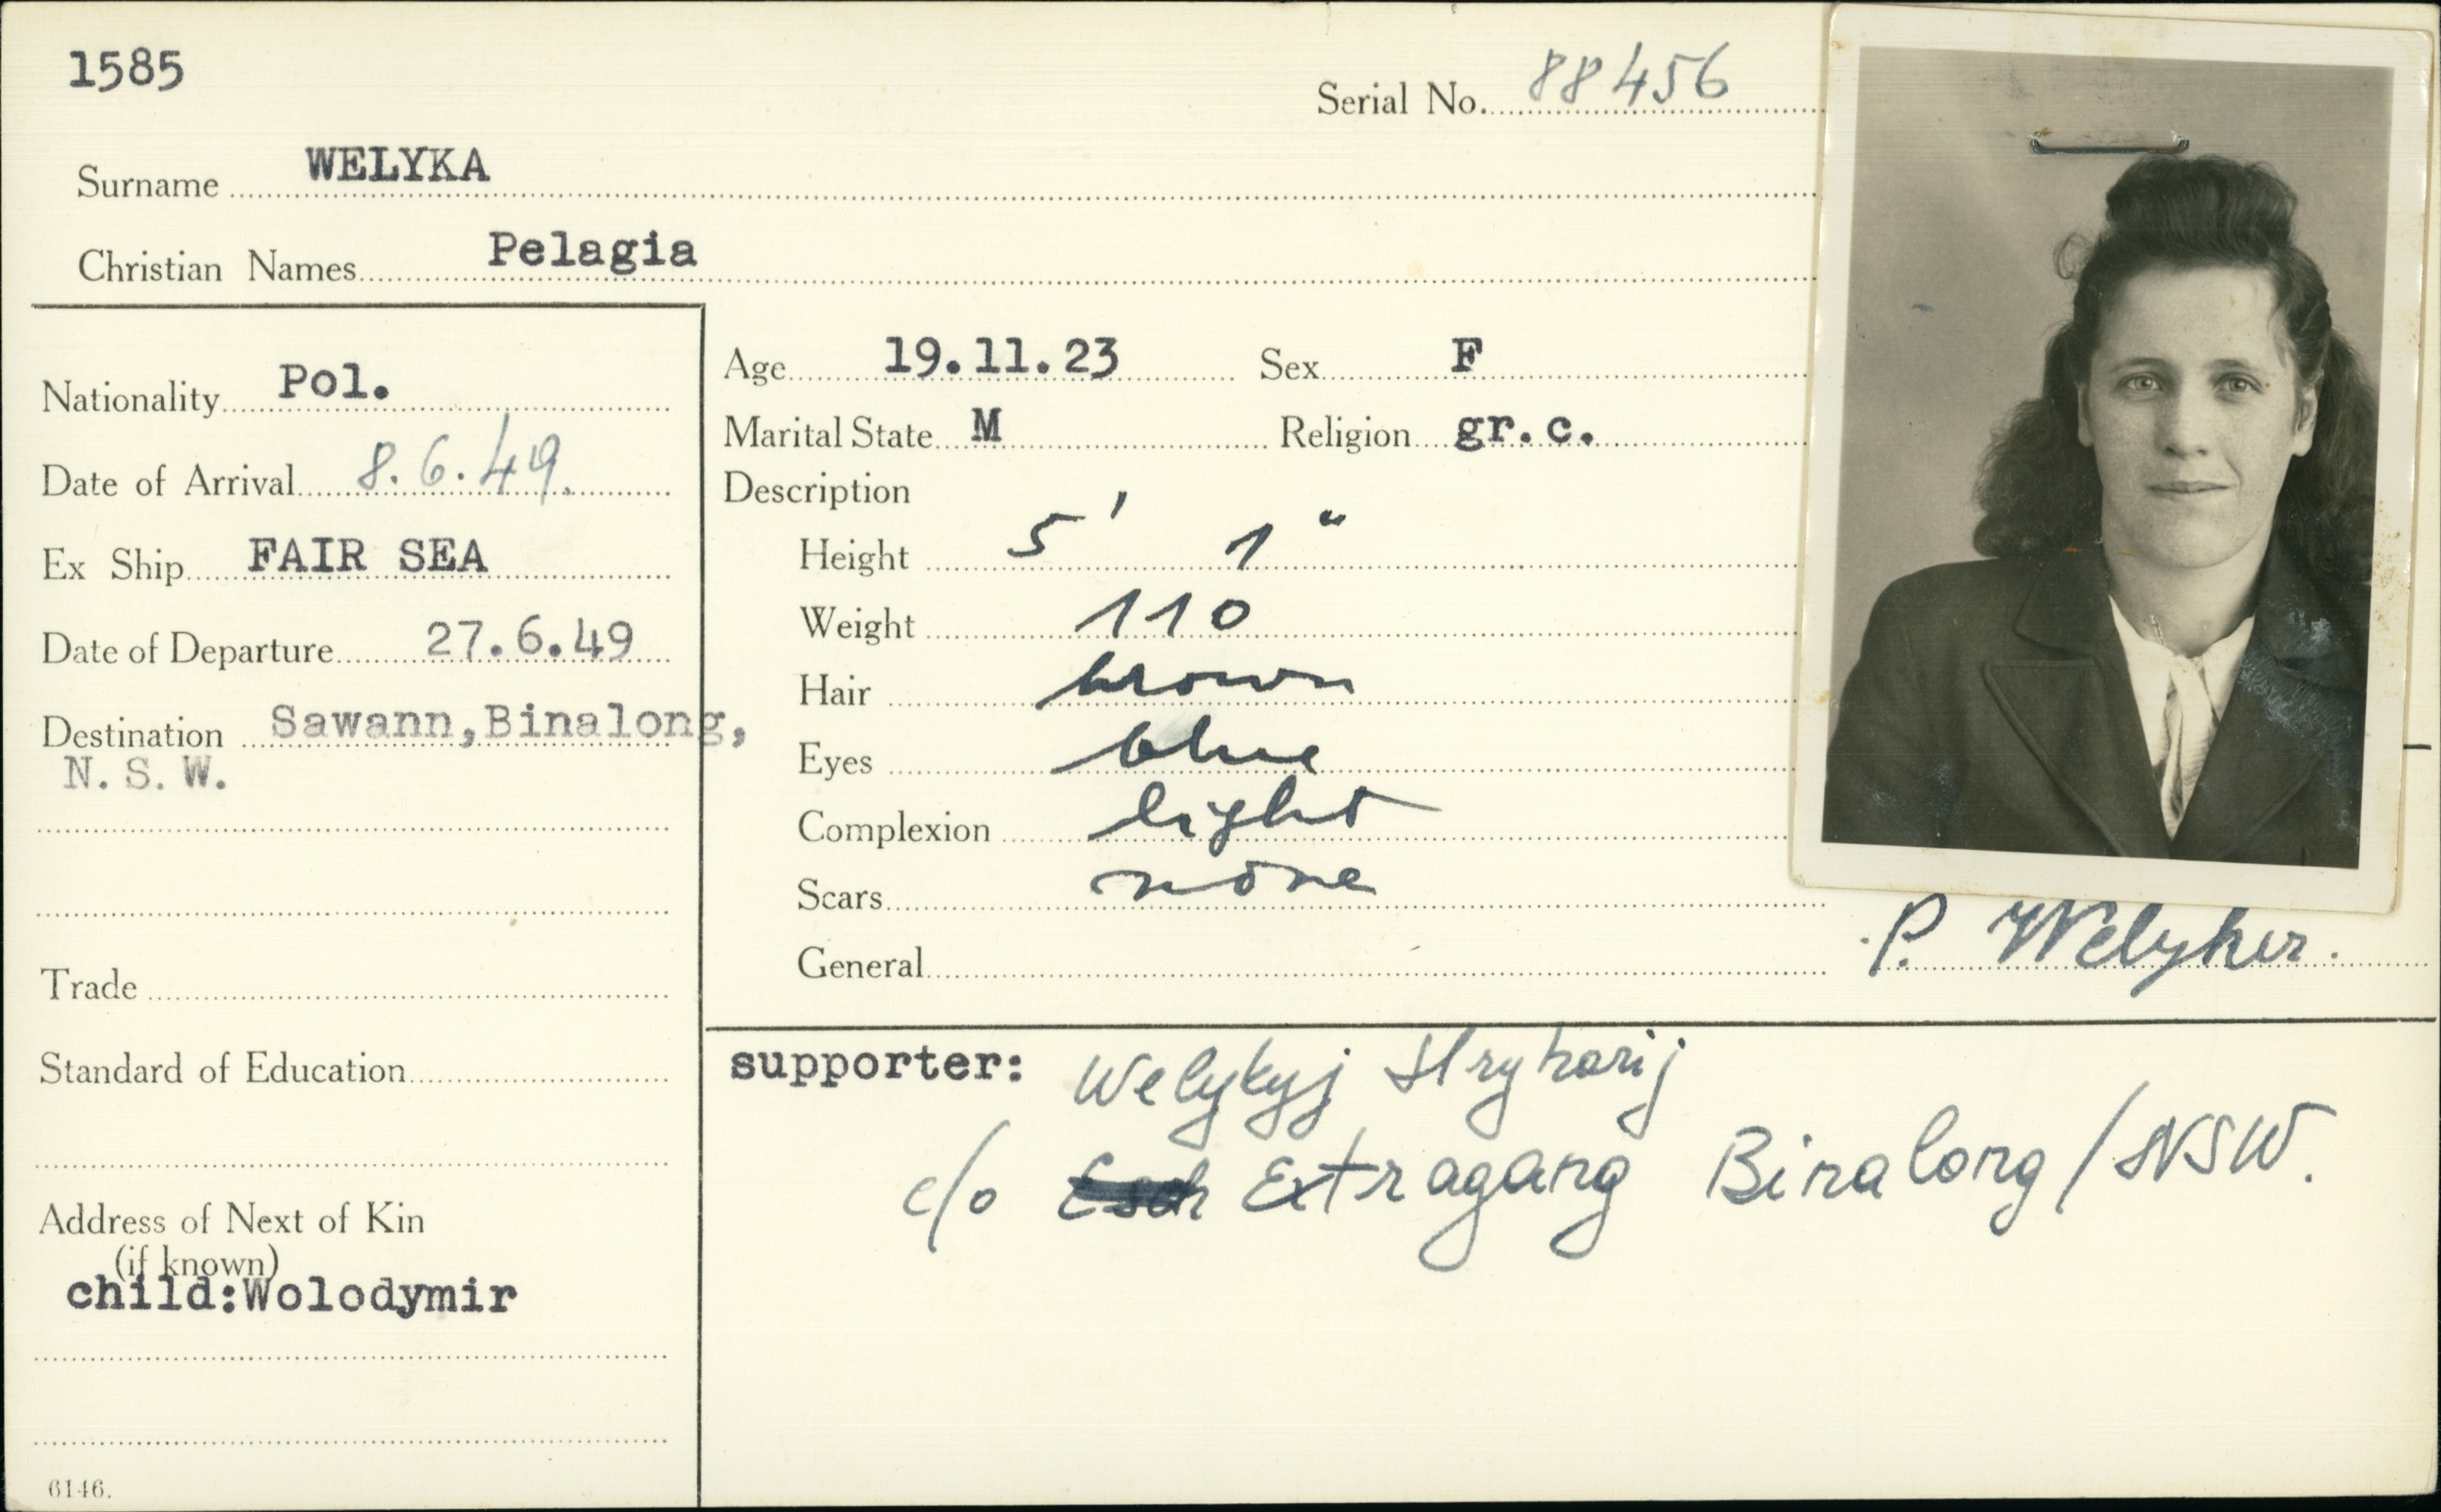 1585
Serial No. 88456
Surname WELYKA
Christian Names Pelagia
Nationality Pol.
Date of Arrival 8.6.49.
Ex Ship FAIR SEA
Date of Departure 27.6.49
Destination Sawann,Binalong,
N.S.W.
Trade
Standard of Education
Address of Next of Kin
(if known)
child:Wolodymir
6146.
Age 19.11.23 Sex F
Marital State M Religion gr.c.
Description
Height 5' 1"
Weight 110
Hair brown
Eyes blue
Complexion light
Scars none
General
P.
supporter: Welykyj Hryharij
c/o Extragang Binalong/NSW.